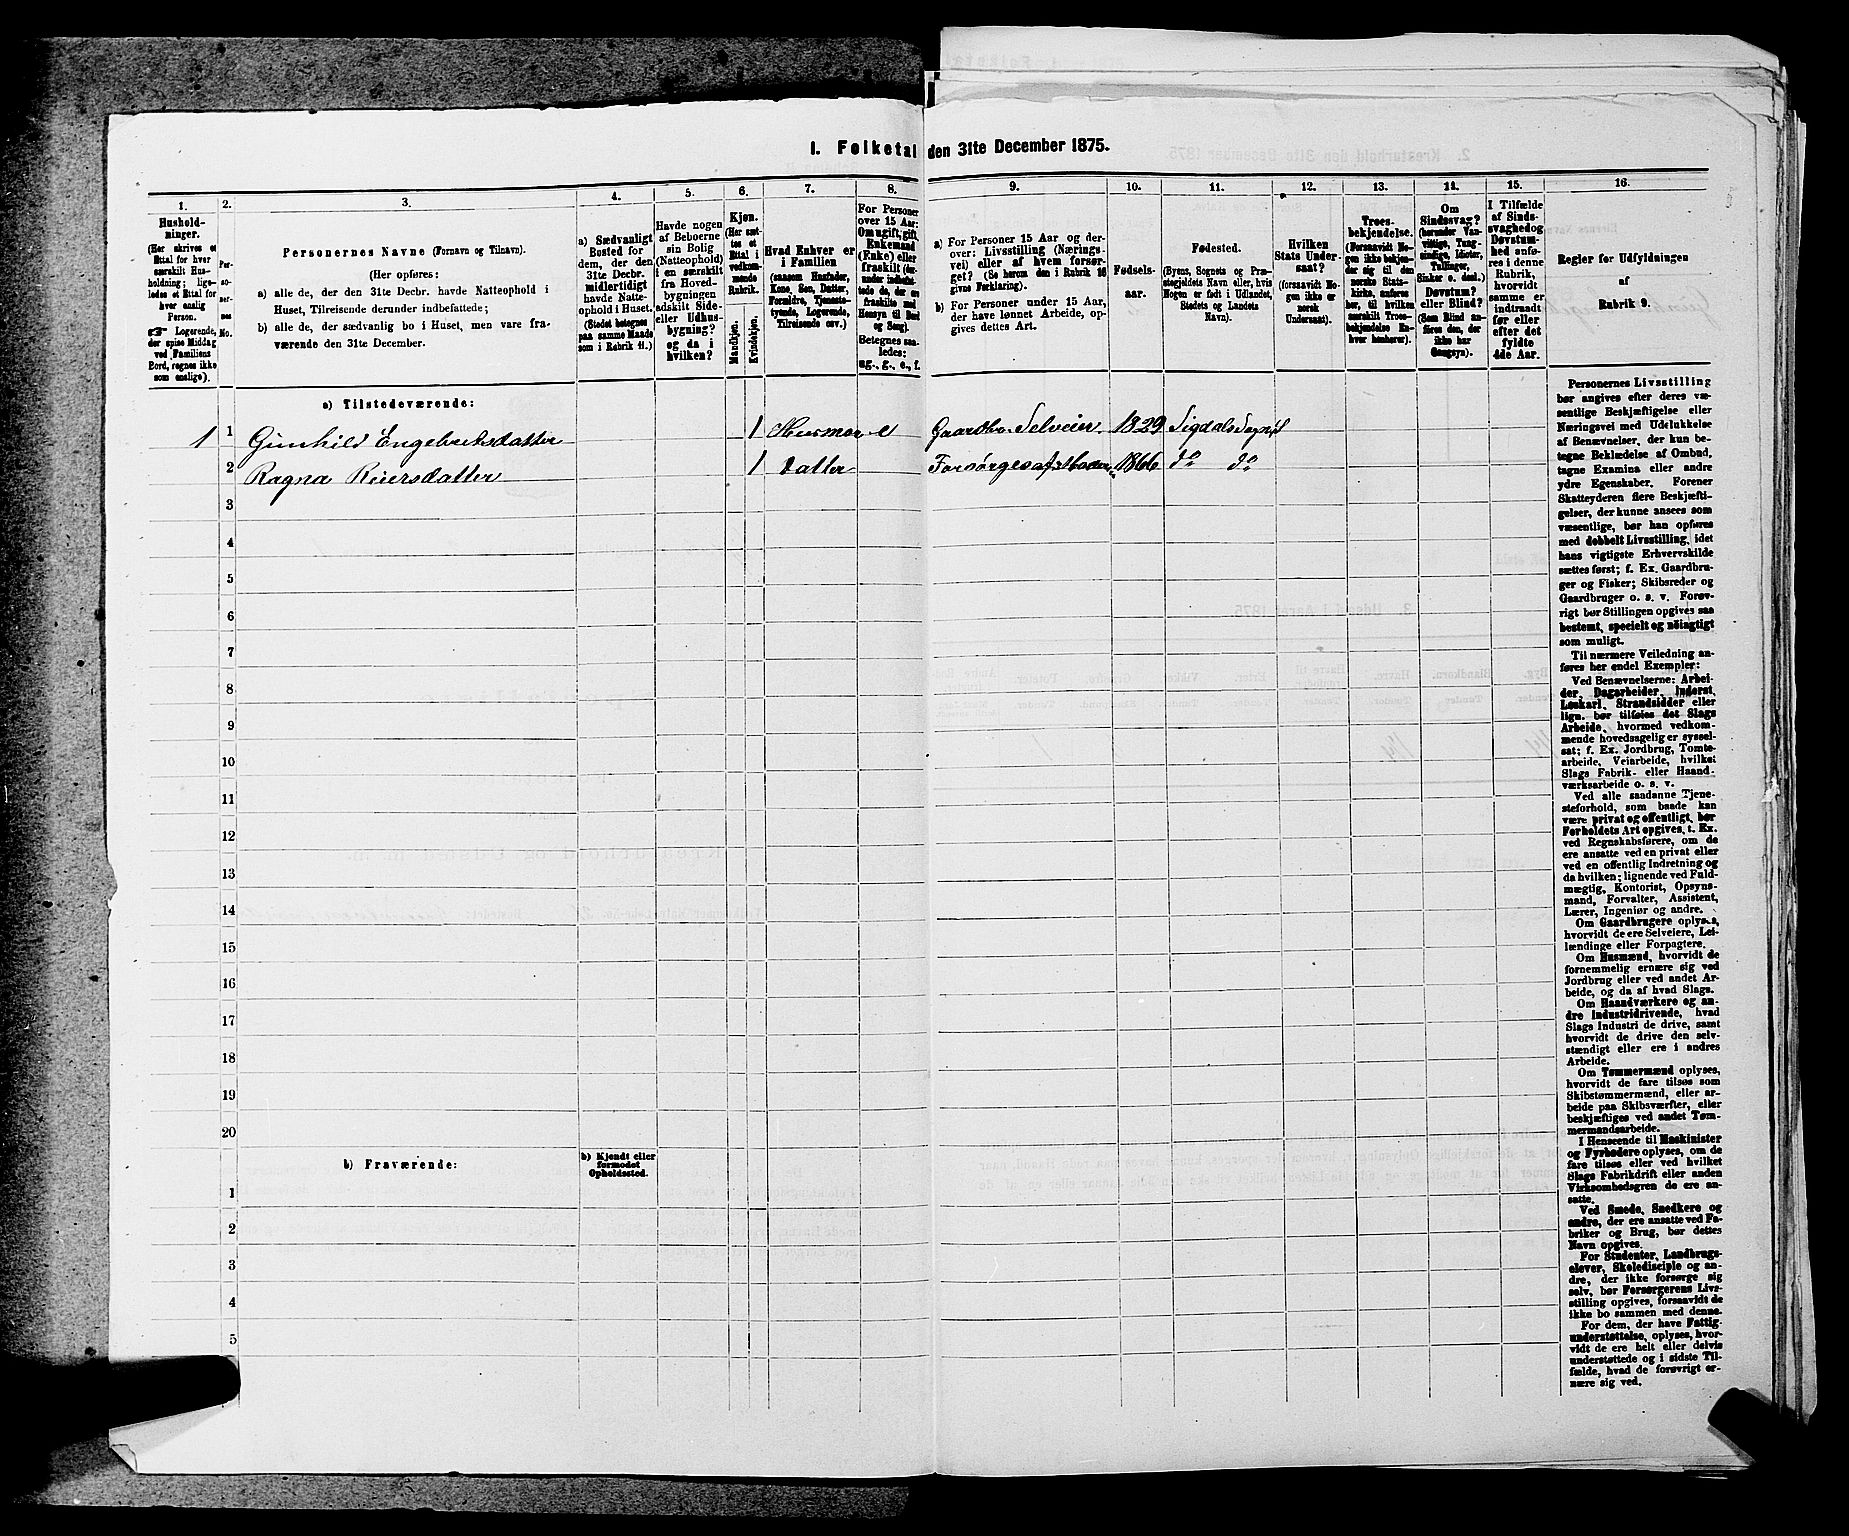 1. Folketal den 31te December 1875.
1. 2. 3. 4. 5. 6. 7. 8. 9. 10. 11. 12. 13. 14. 15. 16.
Hushold-
ninger.
(Her skrives et
Ettal for hver
særskilt Hus-
holdning; lige-
ledes et Ettal for
hver enslig
Person.
☞ Logerende,
der spise Middag
ved Familiens
Bord, regnes ikke
som enslige).
Per-
so-
ner-
nes
No.
Personernes Navne (Fornavn og Tilnavn).
(Her opføres:
a) alle de, der den 31te Decbr. havde Natteophold i
Huset, Tilreisende derunder indbefattede;
b) alle de, der sædvanlig bo i Huset, men vare fra-
værende den 31te December.
a) Sædvanligt
Bosted for
dem, der den
31te Decbr.
midlertidigt
havde Natte-
ophold i Huset.
(Stedet betegnes
paa samme Maade
som i Rubrik 11.)
Havde nogen
af Beboerne
sin Bolig
(Natteophold)
i en særskilt
fra Hoved-
bygningen
adskilt Side-
eller Udhus-
bygning?
og da i
hvilken?
Kjøn.
(Her sæt-
tes et
Ettal i
vedkom-
mende
Rubrik.
Mandkjøn.
Kvindekjøn.
Hvad Enhver er
i Familien
(saasom Husfader,
Kone, Søn, Datter,
Forældre, Tjeneste-
tyende, Logerende,
Tilreisende osv.)
For Personer
over 15 Aar:
Om ugift, gift,
Enkemand
(Enke) eller
fraskilt (der-
under indbefat-
tede de, der ere
fraskilte med
Hensyn til Bord
og Seng).
Betegnes saa-
ledes:
ug., g., e., f.
a) For Personer 15 Aar og der-
over: Livsstilling (Nærings-
vei) eller af hvem forsør-
get? (Se herom den i Rubrik 16
givne Forklaring).
b) For Personer under 15 Aar,
der have lønnet Arbeide, op-
gives dettes Art.
Fødsels-
aar.
Fødested.
(Byens, Sognets og Præ-
stegjeldets Navn eller, hvis
Nogen er født i Udlandet,
Stedets og Landets
Navn).
Hvilken
Stats Under-
saat?
(forsaavidt No-
gen ikke er
norsk
Undersaat).
Troes-
bekjendelse.
(Forsaavidt No-
gen ikke bekjen-
der sig til den
norske Stats-
kirke, anføres
her, til hvilken
særskilt Troes-
bekjendelse En-
hver henhører).
Om
Sindssvag?
(herunder Van-
vittige, Tung-
sindige, Idioter,
Tullinger,
Sinker o. desl.)
Døvstum?
eller Blind?
(Som Blind an-
føres den, der
ikke har
Gangsyn).
I Tilfælde
af Sinds-
svaghed og
Døvstum-
hed anfø-
res i denne
Rubrik,
hvorvidt
samme er
indtraadt
før eller
efter det
fyldte
4de Aar.
Regler for Udfyldningen
af
Rubrik 9.
a) Tilstedeværende:
1 1 Gunhild Engebretsdatter 1 Husmor e Gaardbr. Selveier. 1829 Sigdals
2 Ragna Reiersdatter 1 datter Forsørges af 1866 do do
3
4
5
6
7
8
9
10
11
12
13
14
15
16
17
18
19
20
b) Fraværende:
b) Kjendt eller
formodet
Opholdssted.
1
2
3
4
5
Personernes Livsstilling
bør angives efter deres væ-
sentlige Beskjæftigelse eller
Næringsvei med Udelukkelse
af Benævnelser, der kun be-
tegne Beklædelse af Ombud,
tagne Examina eller andre
ydre Egenskaber. Forener
Skatteyderen flere Beskjæfti-
gelser, der kunne ansees som
væsentlige, bør han opføres
med dobbelt Livsstilling, idet
hans vigtigste Erhvervskilde
sættes først; f. Ex. Gaardbru-
ger og Fisker; Skibsreder og
Gaardbruger o. s. v. Forøv-
rigt bør Stillingen opgives saa
bestemt, specielt og nøiagtigt
som muligt.
Til nærmere Veiledning an-
føres her endel Exempler:
Ved Benævnelserne: Arbei-
der, Dagarbeider, Inderst,
Løskarl, Strandsidder eller
lign. bør tilføies det Slags
Arbeide, hvormed vedkom-
mende hovedsagelig er syssel-
sat; f. Ex. Jordbrug, Tomte-
arbeide, Veiarbeide, hvilket
Slags Fabrik- eller Haand-
værksarbeide o. s. v.
Ved alle saadanne Tjene-
steforhold, som baade kan
være privat og offentligt, bør
Forholdets Art opgives, t. Ex.
ved Regnskabsførere, om de
ere ansatte ved en privat eller
ved en offentlig Indretning og
da hvilken; lignende ved Fuld-
mægtig, Kontorist, Opsyns-
mand, Forvalter, Assistent,
Lærer, Ingeniør og andre.
Om Gaardbrugere oplyses,
hvorvidt de ere Selveiere, Lei-
lændinge eller Forpagtere.
Om Husmænd, hvorvidt de
fornemmelig ernære sig ved
Jordbrug eller ved andet Ar-
beide, og da af hvad Slags.
Om Haandværkere og an-
dre Industridrivende, hvad
Slags Industri de drive, samt
hvorvidt de drive den selv-
stændigt eller ere i andres
Arbeide.
Om Tømmermænd oplyses,
hvorvidt de fare tilsøs som
Skibstømmermænd, eller ar-
beide paa Skibsværfter, eller
beskjæftiges ved andet Tøm-
mermandsarbeide.
I Henseende til Maskinister
og Fyrbødere oplyses, om de
fare tilsøs eller ved hvilket
Slags Fabrikdrift eller anden
Virksomhedsgren de ere an-
satte.
Ved Smede, Snedkere og
andre, der ere ansatte ved Fa-
briker og Brug, bør dettes
Navn opgives.
For Studenter, Landbrugs-
elever, Skoledisciple og an-
dre, der ikke forsørge sig
selv, bør Forsørgerens Livs-
stilling opgives, forsaavidt de
ikke bo sammen med denne.
For dem, der have Fattig-
understøttelse, oplyses, hvor-
vidt de ere helt eller delvis
understøttede og i sidste Til-
fælde, hvad de forøvrigt er-
nære sig ved.